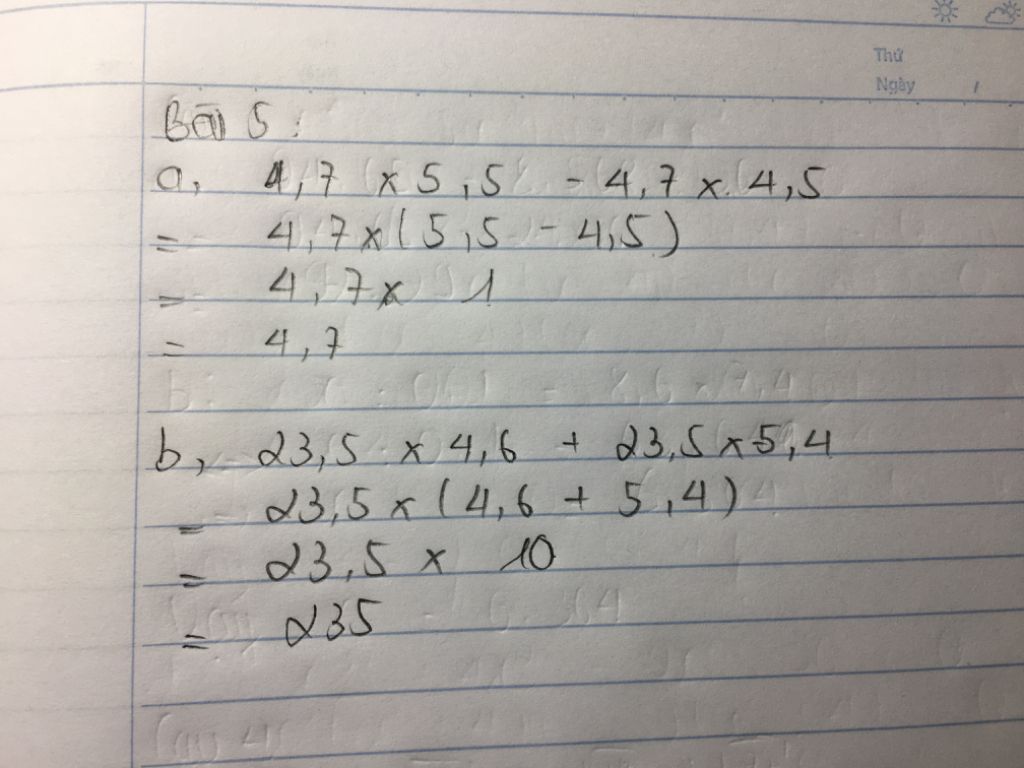 Thứ
Ngày /
Bài 5 :
a, 4,7 x 5,5 - 4,7 x 4,5
= 4,7 x (5,5 - 4,5)
= 4,7 x 1
= 4,7
b, 23,5 x 4,6 + 23,5 x 5,4
= 23,5 x (4,6 + 5,4)
= 23,5 x 10
= 235